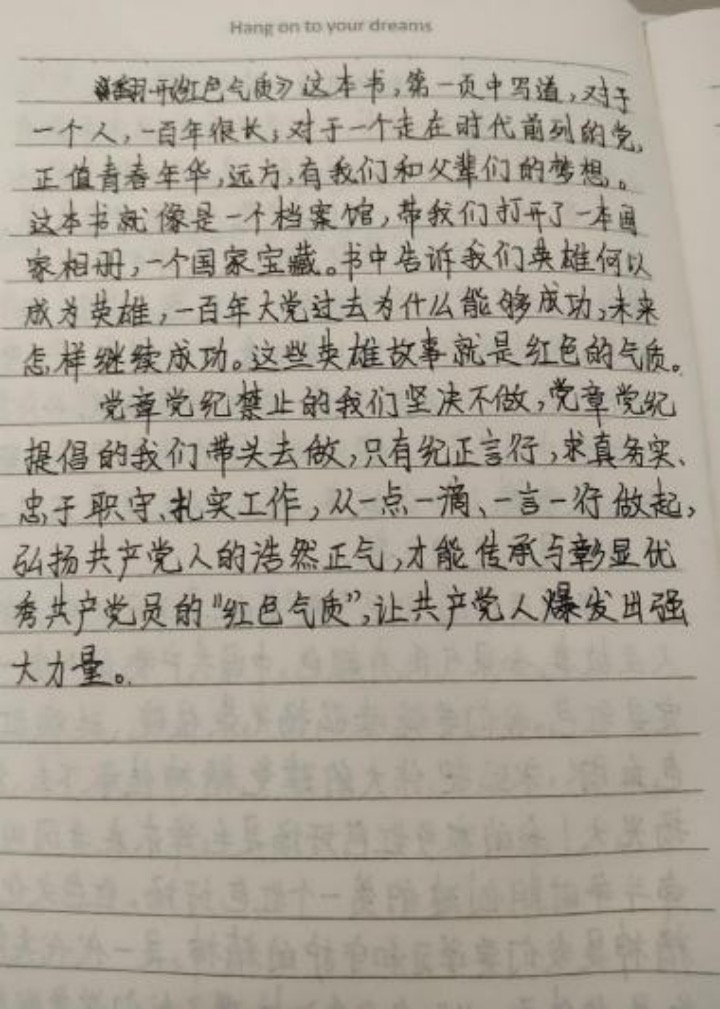 Hang on to your dreams
翻开《红色气质》这本书，第一页中写道，对于
一个人，一百年很长；对于一个走在时代前列的党，
正值青春年华，远方，有我们和父辈们的梦想。
这本书就像是一个档案馆，带我们打开了一本国
家相册，一个国家宝藏。书中告诉我们英雄何以
成为英雄，一百年大党过去为什么能够成功，未来
怎样继续成功。这些英雄故事就是红色的气质。
党章党纪禁止的我们坚决不做，党章党纪
提倡的我们带头去做，只有纪正言行，求真务实、
忠于职守、扎实工作，从一点一滴、一言一行做起，
弘扬共产党人的浩然正气，才能传承与彰显优
秀共产党员的“红色气质”，让共产党人爆发出强
大力量。